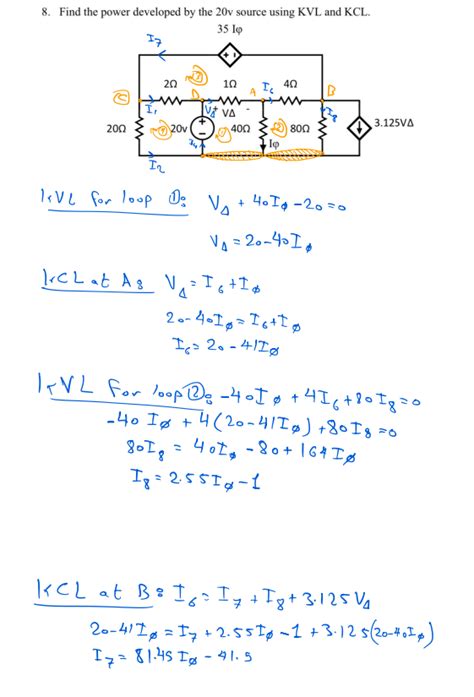 8. Find the power developed by the 20v source using KVL and KCL.
35 Iφ
I7
2Ω 1Ω I6 4Ω
C D A B
I1 V∆ + V∆ - I8
20Ω 20v 40Ω 80Ω 3.125V∆
Iφ
I2
KVL for loop ①: V∆ + 40Iφ - 20 = 0
V∆ = 20 - 40Iφ
KCL at A: V∆ = I6 + Iφ
20 - 40Iφ = I6 + Iφ
I6 = 20 - 41Iφ
KVL for loop ②: -40Iφ + 4I6 + 80I8 = 0
-40Iφ + 4(20 - 41Iφ) + 80I8 = 0
80I8 = 40Iφ - 80 + 164Iφ
I8 = 2.55Iφ - 1
KCL at B: I6 = I7 + I8 + 3.125V∆
20 - 41Iφ = I7 + 2.55Iφ - 1 + 3.125(20 - 40Iφ)
I7 = 81.45Iφ - 41.5